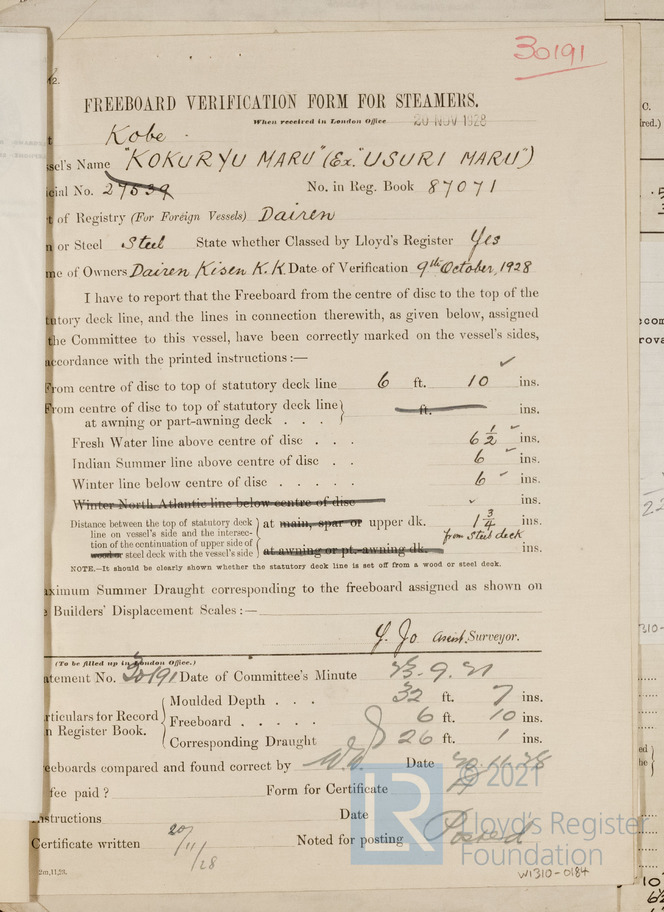 30191
2.
FREEBOARD VERIFICATION FORM FOR STEAMERS.
When received in London Office 20 NOV 1928
t Kobe
sel's Name "KOKURYU MARU" (Ex. "USURI MARU")
cial No. 27539 No. in Reg. Book 87071
t of Registry (For Foreign Vessels) Dairen
n or Steel Steel State whether Classed by Lloyd's Register Yes
me of Owners Dairen Kisen K.K. Date of Verification 9th October, 1928
I have to report that the Freeboard from the centre of disc to the top of the
tutory deck line, and the lines in connection therewith, as given below, assigned
the Committee to this vessel, have been correctly marked on the vessel's sides,
accordance with the printed instructions :—
From centre of disc to top of statutory deck line 6 ft. 10 ins.
From centre of disc to top of statutory deck line
at awning or part-awning deck . . . ft. ins.
Fresh Water line above centre of disc . . . 6 1/2 ins.
Indian Summer line above centre of disc . . 6 ins.
Winter line below centre of disc . . . . . 6 ins.
Winter North Atlantic line below centre of disc ins.
Distance between the top of statutory deck
line on vessel's side and the intersec-
tion of the continuation of upper side of
wood or steel deck with the vessel's side
at main, spar or upper dk. 1 3/4 ins.
from steel deck
at awning or pt.-awning dk. ins.
NOTE.—It should be clearly shown whether the statutory deck line is set off from a wood or steel deck.
aximum Summer Draught corresponding to the freeboard assigned as shown on
e Builders' Displacement Scales :—
Y. Jo Assist. Surveyor.
(To be filled up in London Office.)
atement No. 30191 Date of Committee's Minute 23.9.21
rticulars for Record
n Register Book.
Moulded Depth . . . 32 ft. 7 ins.
Freeboard . . . . . 6 ft. 10 ins.
Corresponding Draught 26 ft. 1 ins.
eeboards compared and found correct by Date 20.11.28
fee paid ? Form for Certificate
Instructions Date
Certificate written 20/11/28 Noted for posting Posted
2m,11,23.
W1310-0184
LR © 2021
Lloyd's Register
Foundation